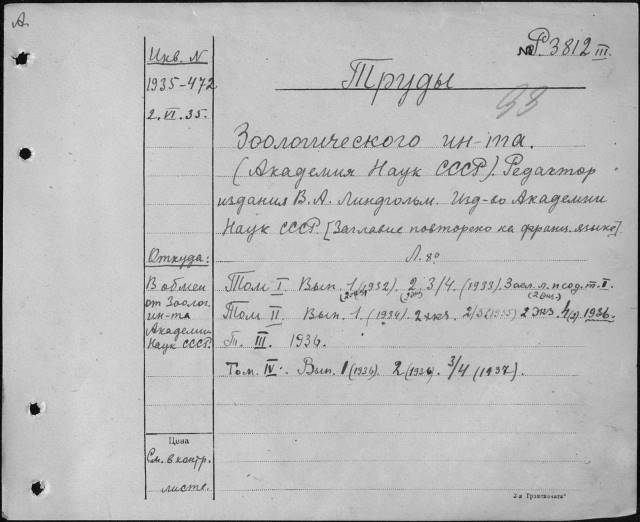 А.
№ Р. 3812 III.
Инв. N
1935-472
2.VI.35.
Труды
93
Зоологического ин-та.
(Академия Наук СССР). Редактор
издания В.А. Линдгольм. Изд-во Академии
Наук СССР. [Заглавие повторено на франц. языке].
Л. 8°
Откуда:
В обмен
от Зоолог.
ин-та
Академии
Наук СССР.
Том I. Вып. 1 (1932). 2. 3/4. (1933). Загл. л. и сод. т. I.
(2 экз.)
Том II. Вып. 1. (1934). 2 экз. 2/3 (1935) 2 экз. 4 1936.
Т. III. 1936.
Том. IV. Вып. 1 (1936). 2 (1936). 3/4 (1937).
Цена
См. в контр.
листе.